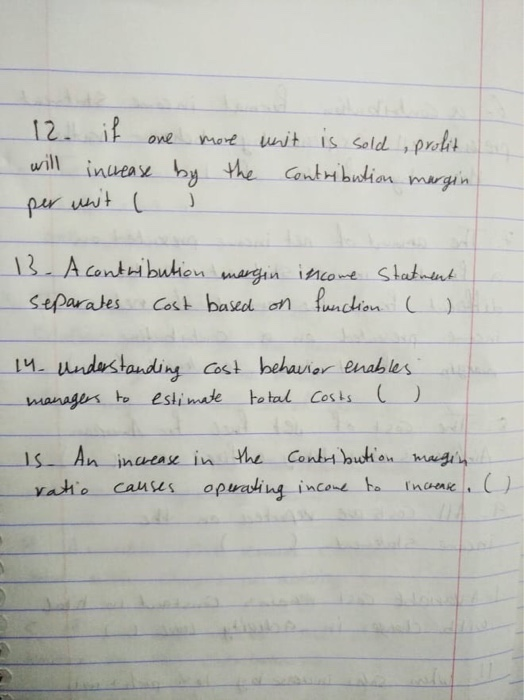 12- if one more unit is sold, profit
will increase by the contribution margin
per unit ( )
13- A contribution margin income Statment
separates cost based on function ( )
14- understanding cost behavior enables
managers to estimate total costs ( )
15- An increase in the contribution margin
ratio causes operating income to increase. ( )